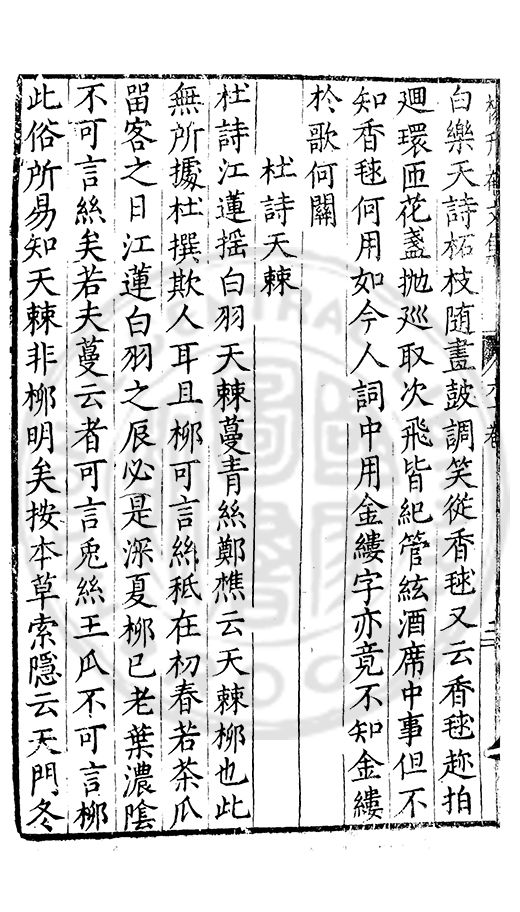 白樂天詩柘枝随畫鼓調笑從香毬又云香毬趂拍
廻環匝花盞抛廵取次飛皆紀管絃酒席中事但不
知香毬何用如今人詞中用金縷字亦竟不知金縷
扵歌何關
杜詩天棘
杜詩江蓮揺白羽天棘蔓青絲鄭樵云天棘柳也此
無所據杜撰欺人耳且柳可言絲秪在初春若茶瓜
留客之日江蓮白羽之辰必是深夏柳已老葉濃陰
不可言絲矣若夫蔓云者可言兎絲王瓜不可言柳
此俗所易知天棘非柳明矣按本草索隠云天門冬